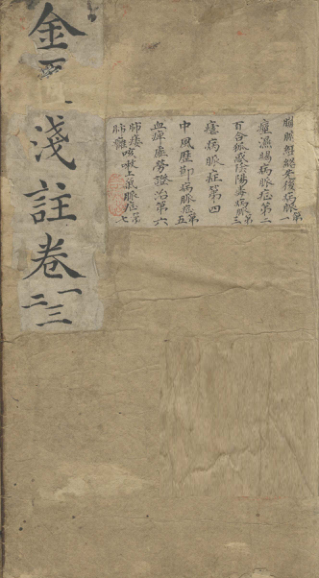 經絡先後病脈第一
痙濕暍病脈症第二
百合狐惑陰陽毒病脈第三
瘧病脈症第四
中風歷節病脈症第五
血痺虛勞證治第六
肺痿咳嗽上氣脈症第七
肺癰
金
淺註卷
一二三